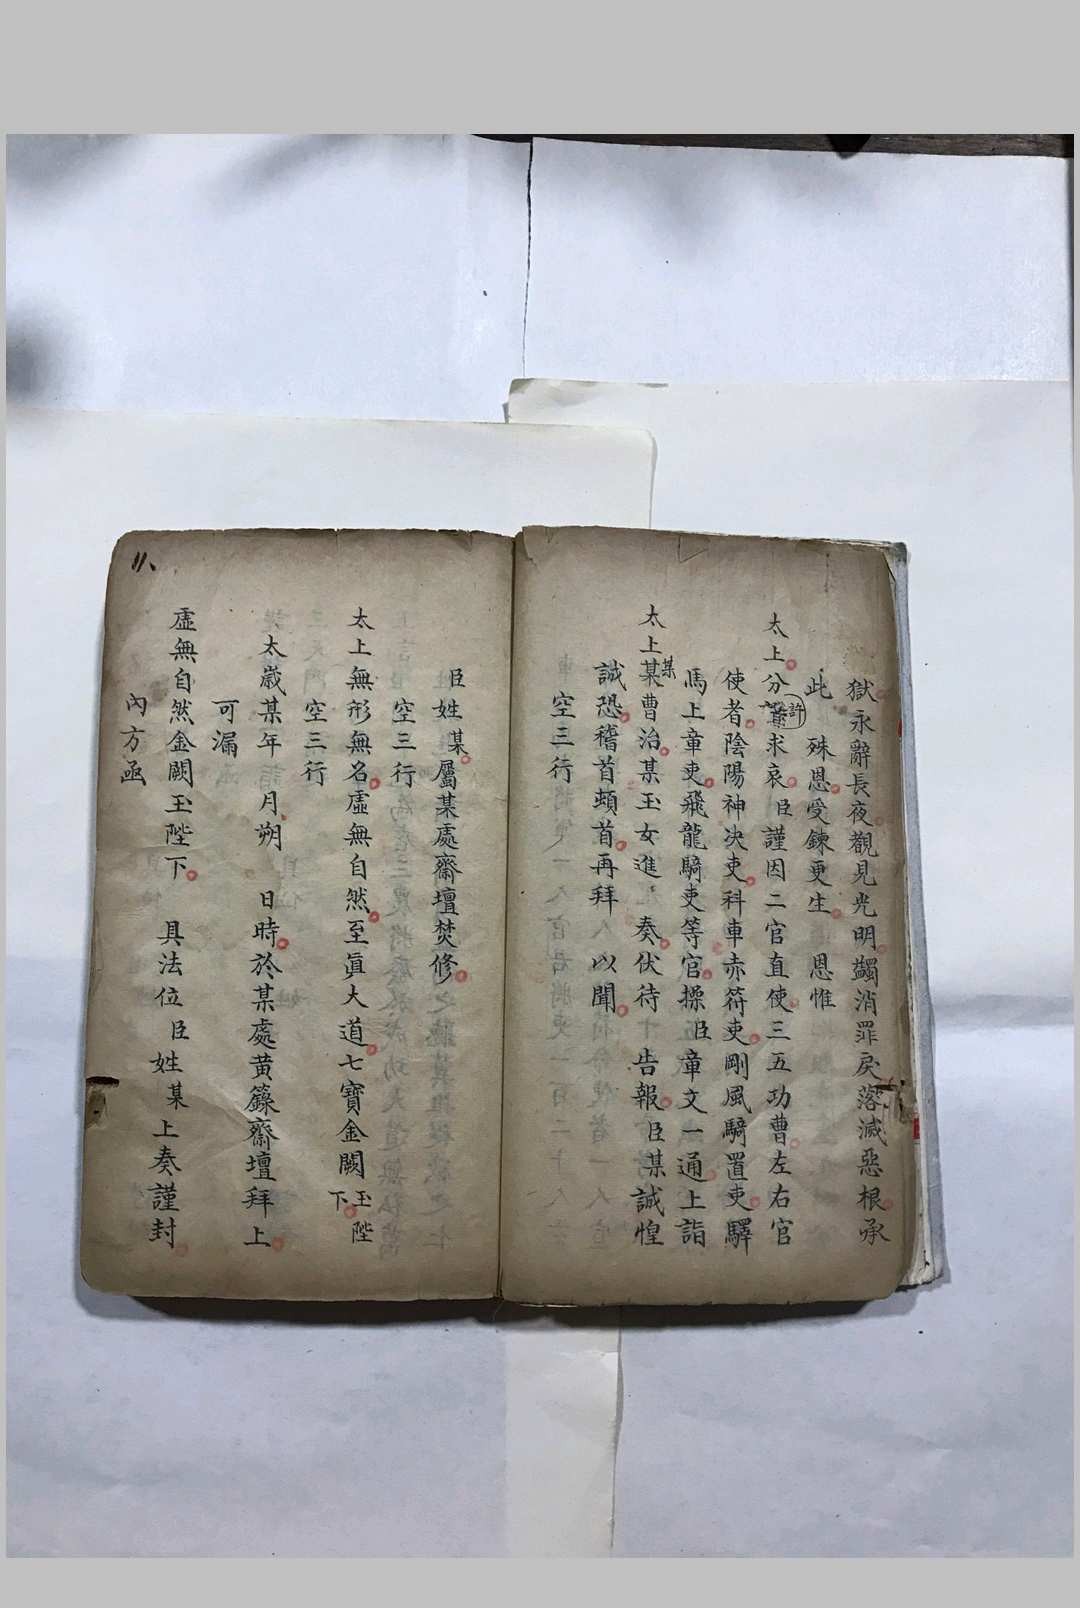 獄永辭長夜觀見光明蠲消罪戾落滅惡根承
此 殊恩受鍊更生 恩惟
太上分許求哀臣謹因二官直使三五功曹左右官
使者陰陽神決吏科車赤符吏剛風騎置吏驛
馬上章吏飛龍騎吏等官操臣章文一通上詣
太上某曹治某玉女進 奏伏待 告報臣某誠惶
某
誠恐稽首頓首再拜 以聞
空三行
臣姓某屬某處齋壇焚修
空三行
太上無形無名虛無自然至真大道七寶金闕玉陛
下
空三行
太歲某年 月朔 日時於某處黃籙齋壇拜上
可漏
虛無自然金闕玉陛下 具法位臣姓某上奏謹封
內方函